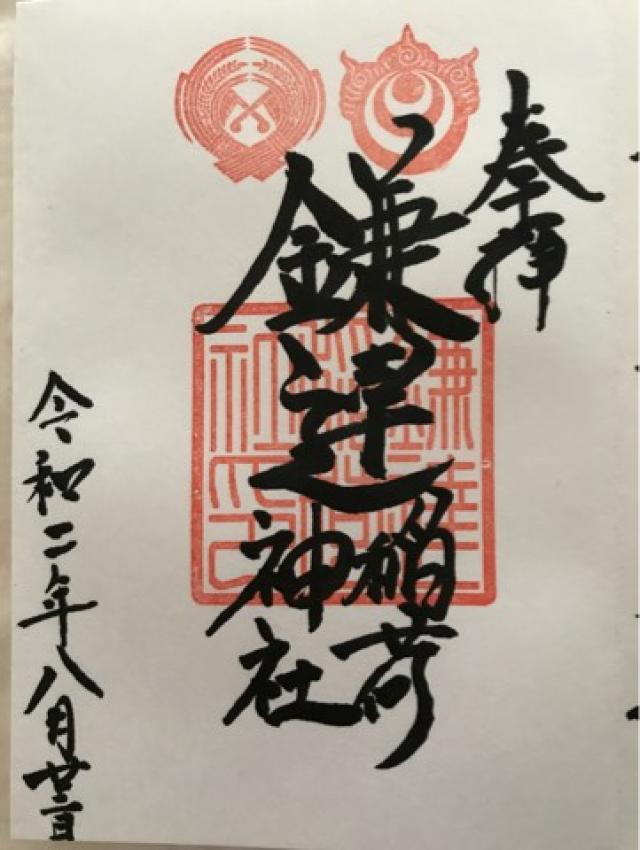 奉拝
鎌達
稲荷
神社
令和二年八月廿日
鎌達
社印